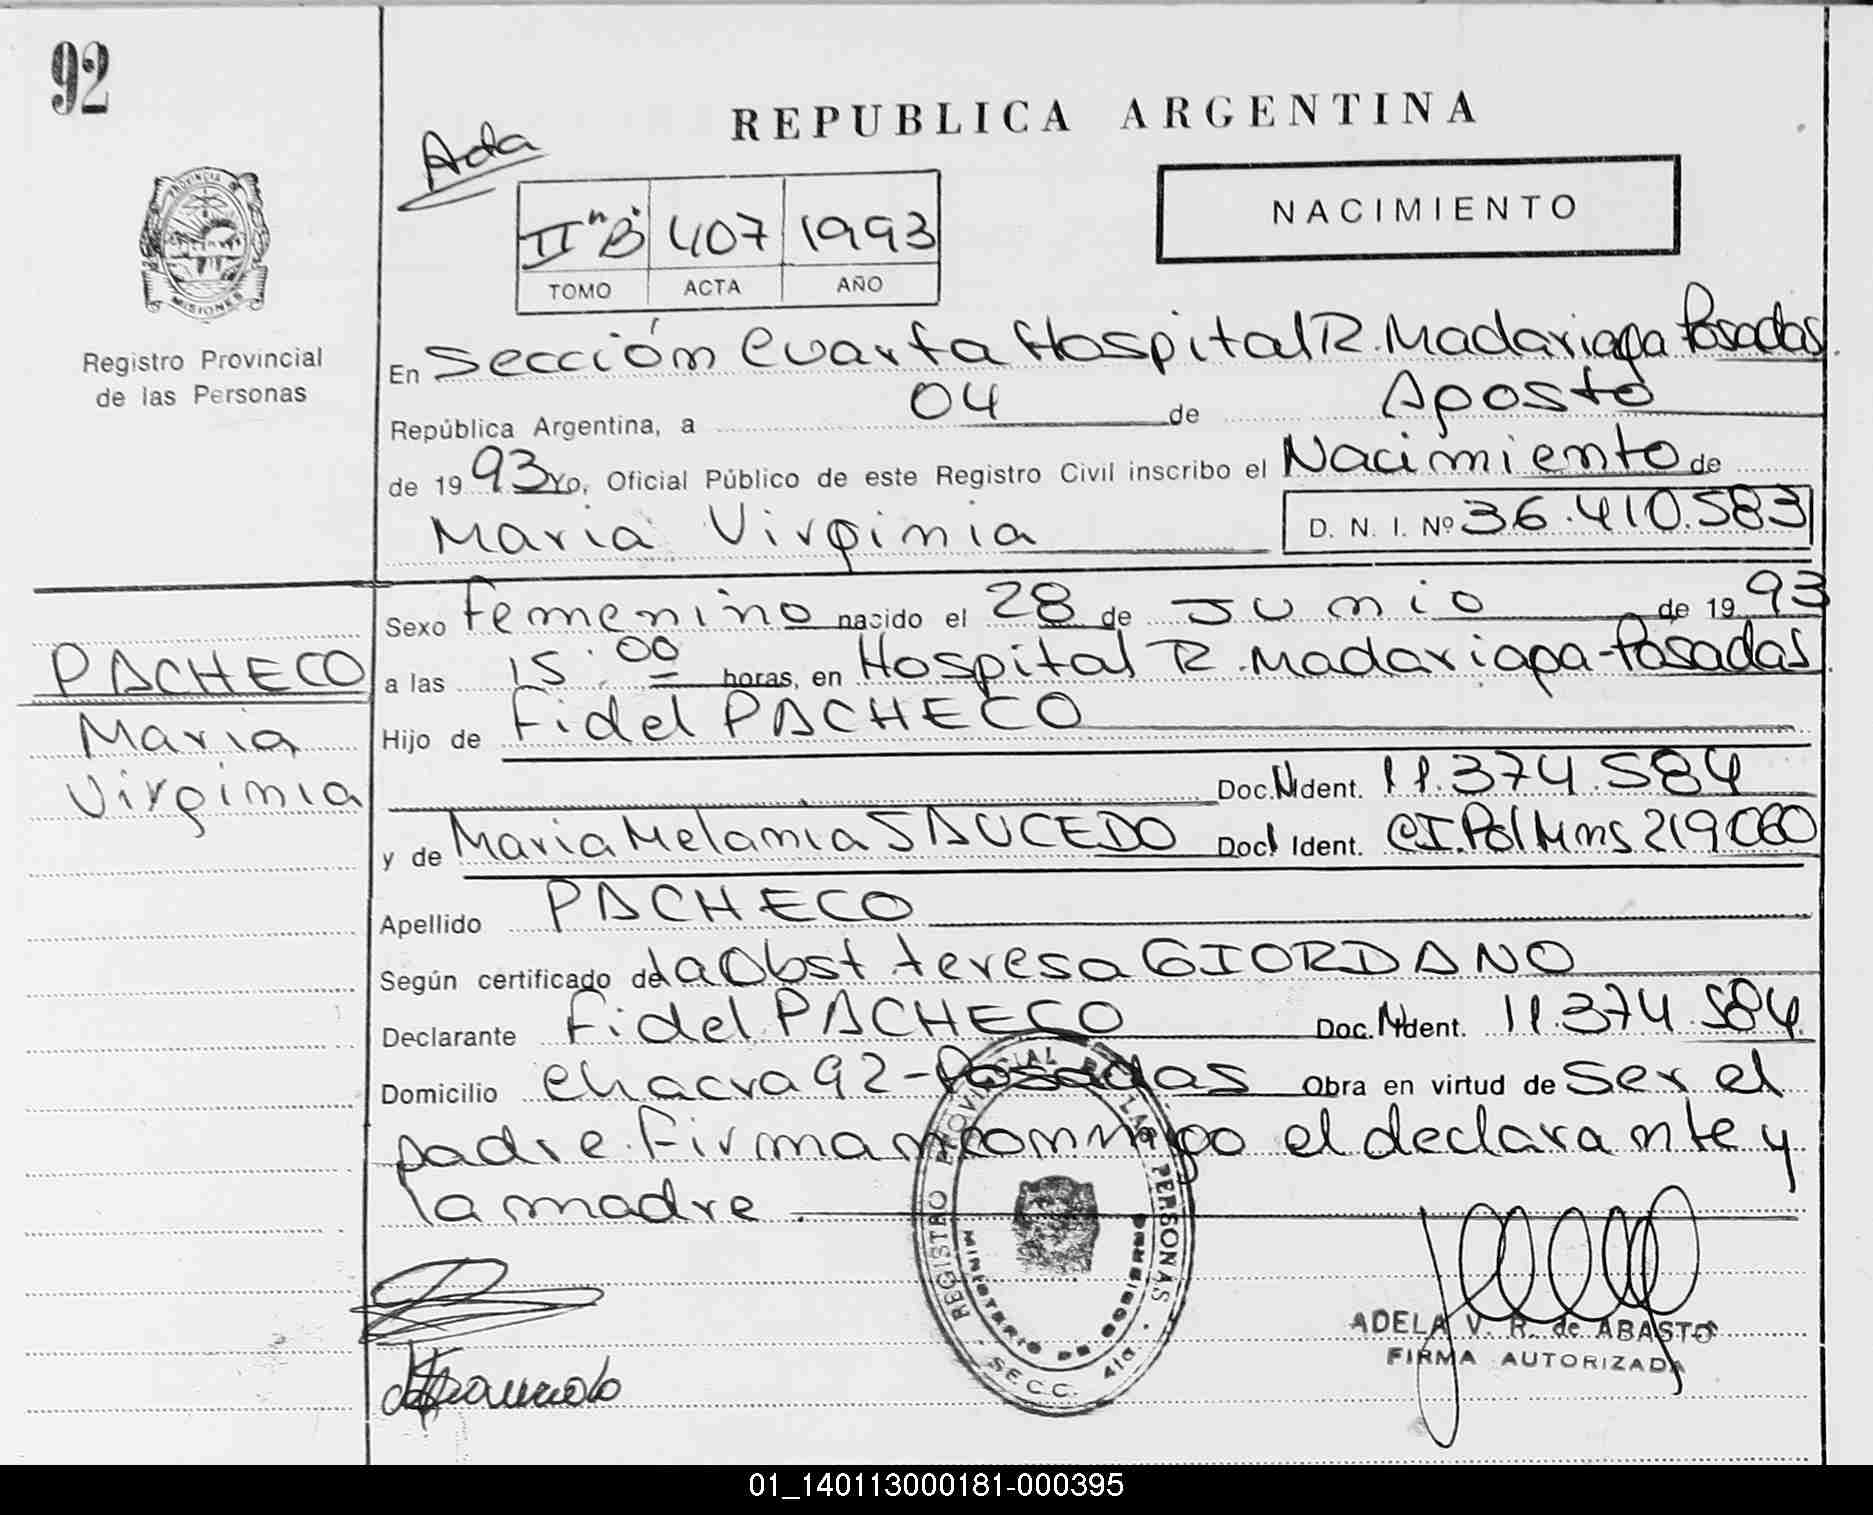 92
REPUBLICA ARGENTINA
Ada
NACIMIENTO
II "B" 407 1993
TOMO ACTA AÑO
PROVINCIA DE
MISIONES
Registro Provincial
de las Personas
En Sección Cuarta Hospital R. Madariaga Posadas
República Argentina, a 04 de Agosto
de 1993 yo, Oficial Público de este Registro Civil inscribo el Nacimiento de
Maria Virginia D. N. I. Nº 36.410.583
Sexo femenino nacido el 28 de Junio de 1993
a las 15:00 horas, en Hospital R. Madariaga-Posadas
Hijo de Fidel PACHECO
Doc. Ident. 11.374.584
y de Maria Melania SAUCEDO Doc. Ident. CI.Pol Mns 219060
Apellido PACHECO
Según certificado de la Obst teresa GIORDANO
Declarante Fidel PACHECO Doc. Ident. 11.374.584
Domicilio chacra 92-Posadas Obra en virtud de ser el
padre. Firman conmigo el declarante y
la madre.
PACHECO
Maria
Virginia
REGISTRO PROVINCIAL DE LAS PERSONAS
MINISTERIO DE GOBIERNO
SECC. 4ta.
ADELA V. R. de ABASTO
FIRMA AUTORIZADA
01_140113000181-000395